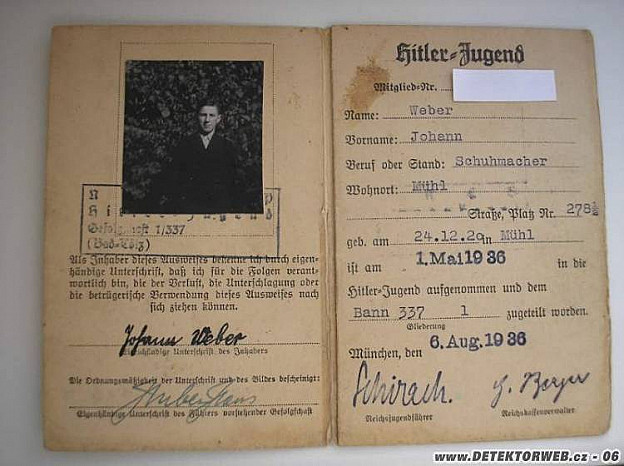 N P
Hitler-Jugend
Gefolgschaft 1/337
(Bad-Tölz)
Als Inhaber dieses Ausweises bekenne ich durch eigen-
händige Unterschrift, daß ich für die Folgen verant-
wortlich bin, die der Verlust, die Unterschlagung oder
die betrügerische Verwendung dieses Ausweises nach
sich ziehen können.
Johann Weber
Eigenhändige Unterschrift des Inhabers
Die Ordnungsmäßigkeit der Unterschrift und des Bildes bescheinigt:
Huber Hans
Eigenhändige Unterschrift des Führers vorstehender Gefolgschaft
Hitler-Jugend
Mitglied-Nr.
Name: Weber
Vorname: Johann
Beruf oder Stand: Schuhmacher
Wohnort: Mühl
Straße, Platz Nr. 278½
geb. am 24.12.20 in Mühl
ist am 1. Mai 1936 in die
Hitler-Jugend aufgenommen und dem
Bann 337 1 zugeteilt worden.
Gliederung
München, den 6. Aug. 1936
Schirach.
Reichsjugendführer
H. Berger
Reichskassenverwalter
www.DETEKTORWEB.cz - 06